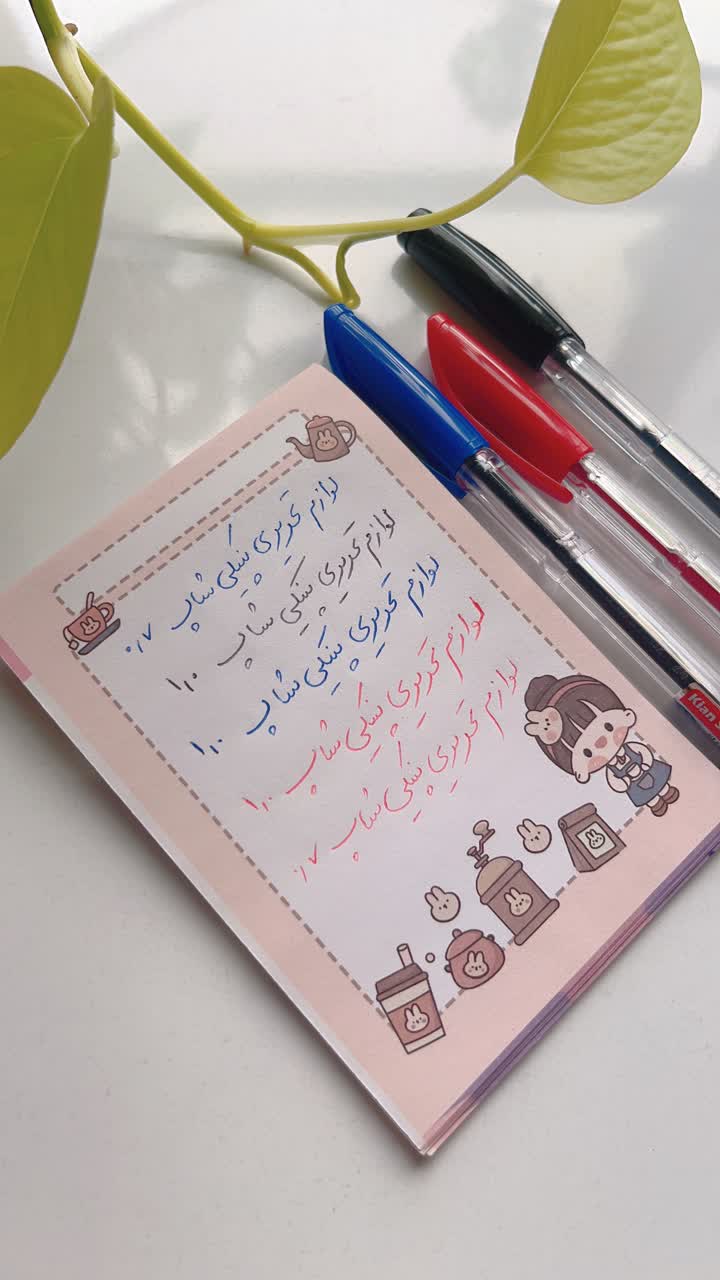 لوازم تحریری پیکی شاپ ۰٫۷
لوازم تحریری پیکی شاپ ۱٫۰
لوازم تحریری پیکی شاپ ۱٫۰
لوازم تحریری پیکی شاپ ۱٫۰
لوازم تحریری پیکی شاپ ۰٫۷
Kian